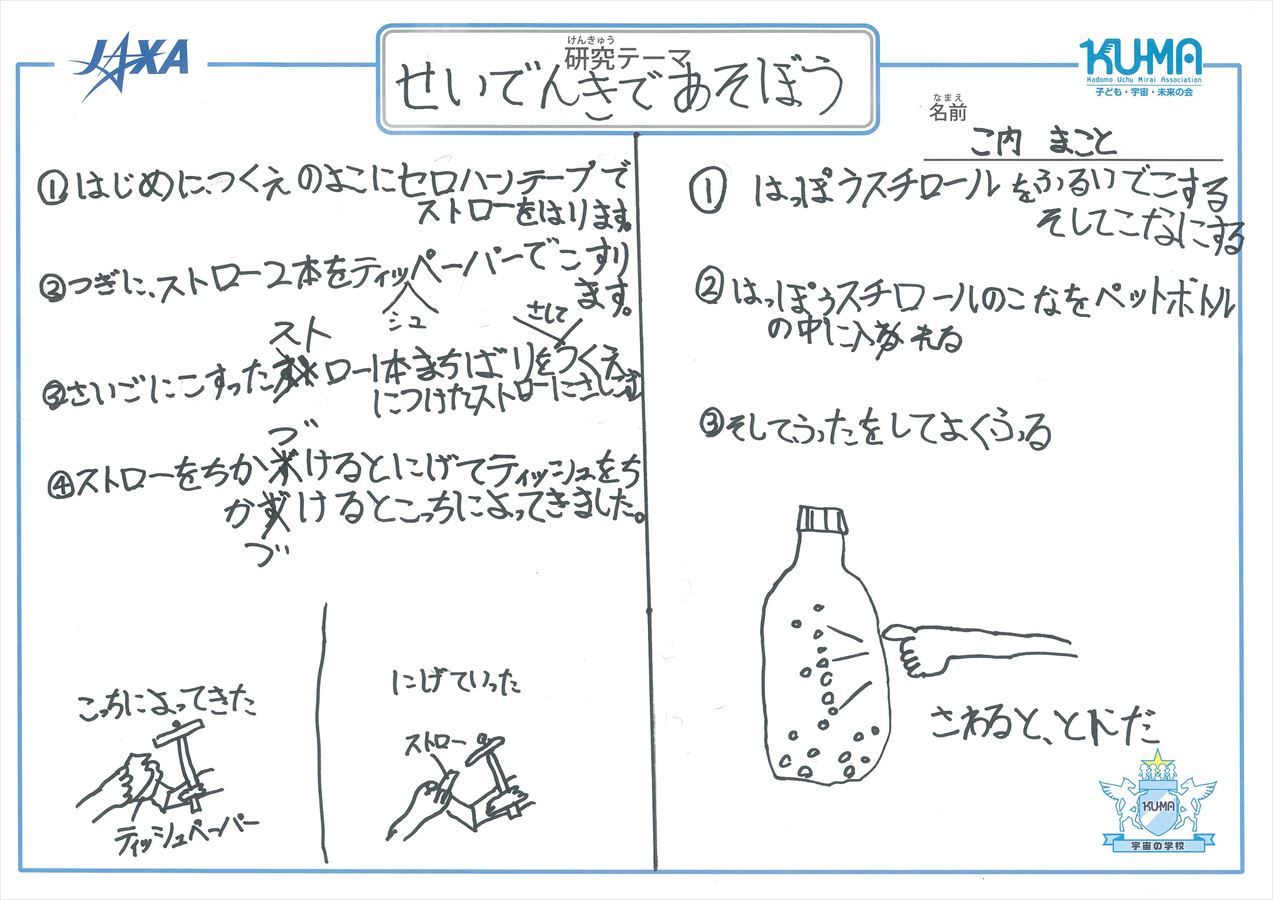 JAXA
けんきゅう
研究テーマ
せいでんきであそぼう
KU-MA
Kodomo Uchu Mirai Association
子ども・宇宙・未来の会
なまえ
名前
こ内 まこと
①はじめに、つくえのよこにセロハンテープで
ストローをはります。
②つぎに、ストロー2本をティッペーパーでこすり
ます。
シュ
さして
スト
③さいごにこすったロー1本まちばりをつくえ
につけたストローにさしこむ
づ
④ストローをちかけるとにげてティッシュをち
かけるとこっちによってきました。
づ
こっちによってきた
ティッシュペーパー
にげていった
ストロー
① はっぽうスチロールをふるいでこする
そしてこなにする
②はっぽうスチロールのこなをペットボトル
の中に入れる
③そして、ふたをしてよくふる
さわると、とんだ
KU-MA
宇宙の学校